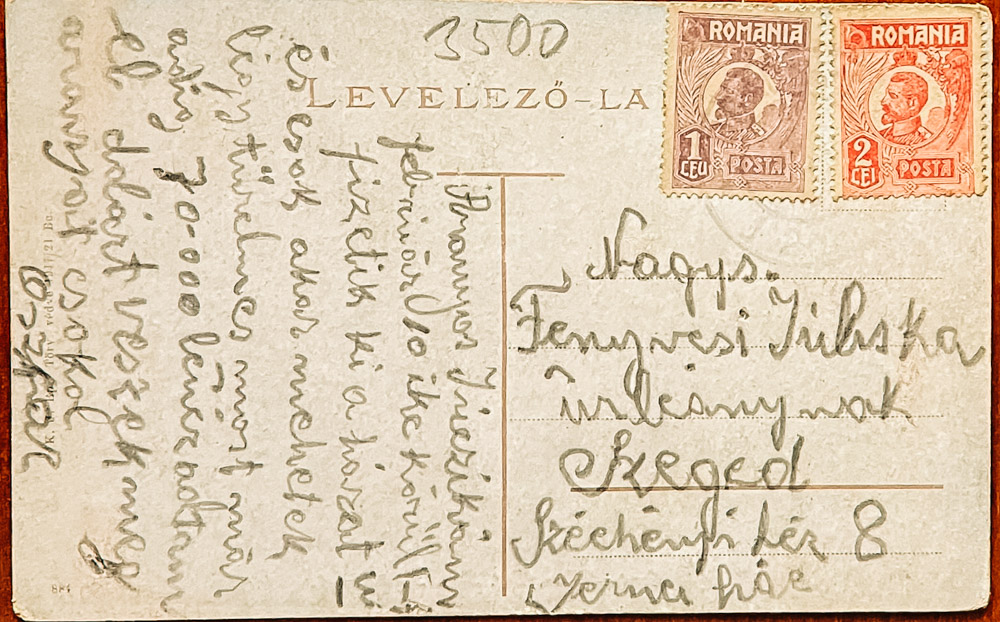 3500
LEVELEZŐ-LA
ROMANIA
1
LEU
POSTA
ROMANIA
2
LEI
POSTA
Aranyos
február 10 ike körül
fizetik ki a házat
és csak akkor mehetek
légy türelmes most már
addig 70-000 léért adtam
el dollárt veszek
aranyat csókol
Oszkár
Nagys.
Fenyvesi Juliska
Úrleánynak
Szeged
Széchényi tér 8
ház
884